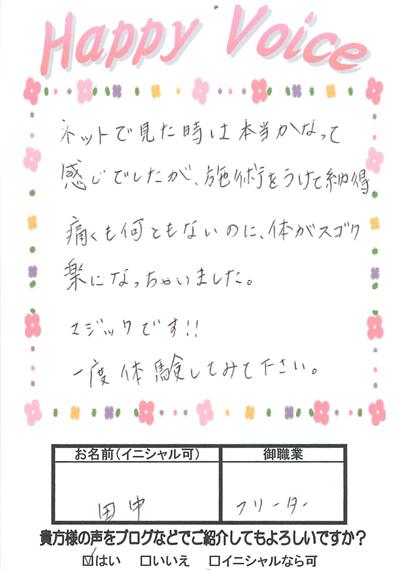 Happy Voice
ネットで見た時は本当かなって
感じでしたが、施術をうけて納得
痛くも何ともないのに、体がスゴク
楽になっちゃいました。
マジックです!!
一度体験してみて下さい。
お名前(イニシャル可) 御職業
田中 フリーター
貴方様の声をブログなどでご紹介してもよろしいですか?
☑はい □いいえ □イニシャルなら可